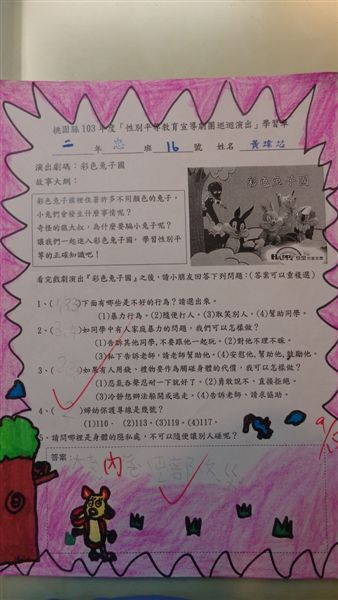 桃園縣103年度「性別平等教育宣導劇團巡迴演出」學習單
二年忠班16號 姓名 黃
演出劇碼：彩色兔子國
故事大綱：
彩色兔子國裡住著許多不同顏色的兔子，
小兔們會發生什麼事情呢？
奇怪的狼大叔，為什麼要騙小兔子呢？
讓我們一起進入彩色兔子國，學習性別平
等的正確知識吧！
彩色兔子國
HAPPY
看完戲劇演出『彩色兔子國』之後，請小朋友回答下列問題：(答案可以重複選)
1、( 123 )下面有哪些是不好的行為？請選出來。
(1)暴力行為。(2)隨便打人。(3)取笑別人。(4)幫助同學。
2、( 3.4 )如同學中有人家庭暴力的問題，我們可以怎樣做？
(1)告訴其他同學，不要跟他一起玩。(2)對他不理不睬。
(3)私下告訴老師，請老師幫助他。(4)安慰他、幫助他、鼓勵他。
3、( )如果有人用錢、禮物要作為觸碰身體的代價，我可以怎樣做？
(1)忍氣吞聲忍耐一下就好了。(2)勇敢說不，直接拒絕。
(3)冷靜想辦法躲開或逃走。(4)告訴老師、請求協助。
4、( 2 )婦幼保護專線是幾號？
(1)110. (2)113.(3)119.(4)117.
5、請問哪裡是身體的隱私處，不可以隨便讓別人碰呢？
答案
內
部